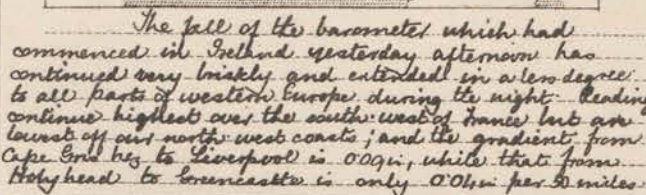 The fall of the barometer which had
commenced in Ireland yesterday afternoon has
continued very briskly and extended in a less degree
to all parts of western Europe during the night. Reading
continue highest over the south-west of France but are
lowest off our north-west coasts; and the gradient from
Cape Gris Nez to Liverpool is 0.09in, while that from
Holyhead to Greencastle is only 0.04in per 50 miles